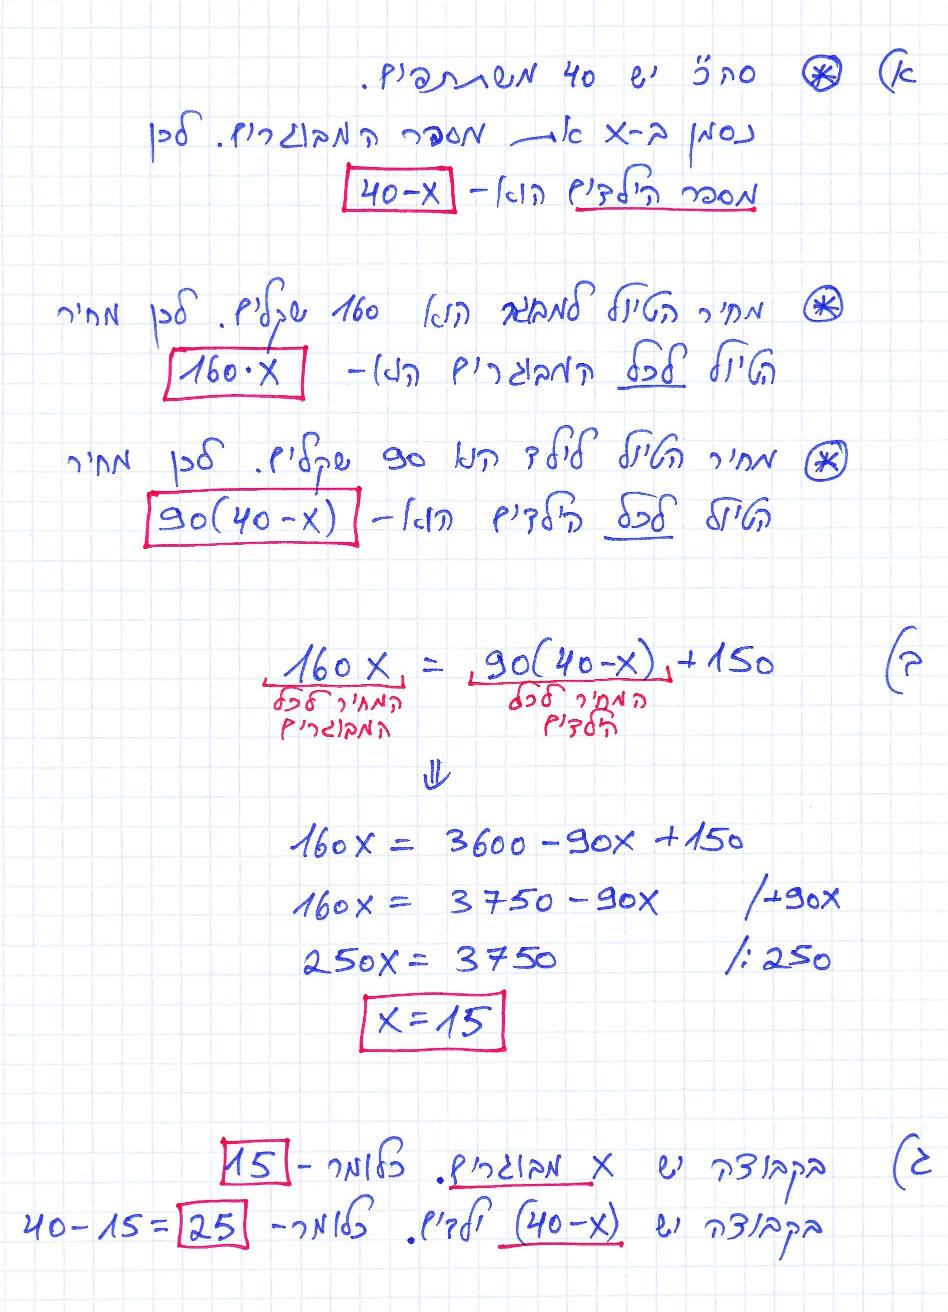 א) * סה"כ יש 40 משתתפים.
נסמן ב-x את מספר המבוגרים. לכן
מספר הילדים הוא- 40-x
* מחיר הטיול למבוגר הוא 160 שקלים. לכן מחיר
הטיול לכל המבוגרים הוא- 160·x
* מחיר הטיול לילד הוא 90 שקלים. לכן מחיר
הטיול לכל הילדים הוא- 90(40-x)
ב) 160x = 90(40-x) +150
המחיר לכל המבוגרים
המחיר לכל הילדים
⇓
160x = 3600 -90x +150
160x = 3750 -90x /+90x
250x = 3750 /:250
x=15
ג) בקבוצה יש x מבוגרים. כלומר- 15
בקבוצה יש (40-x) ילדים. כלומר- 40-15=25